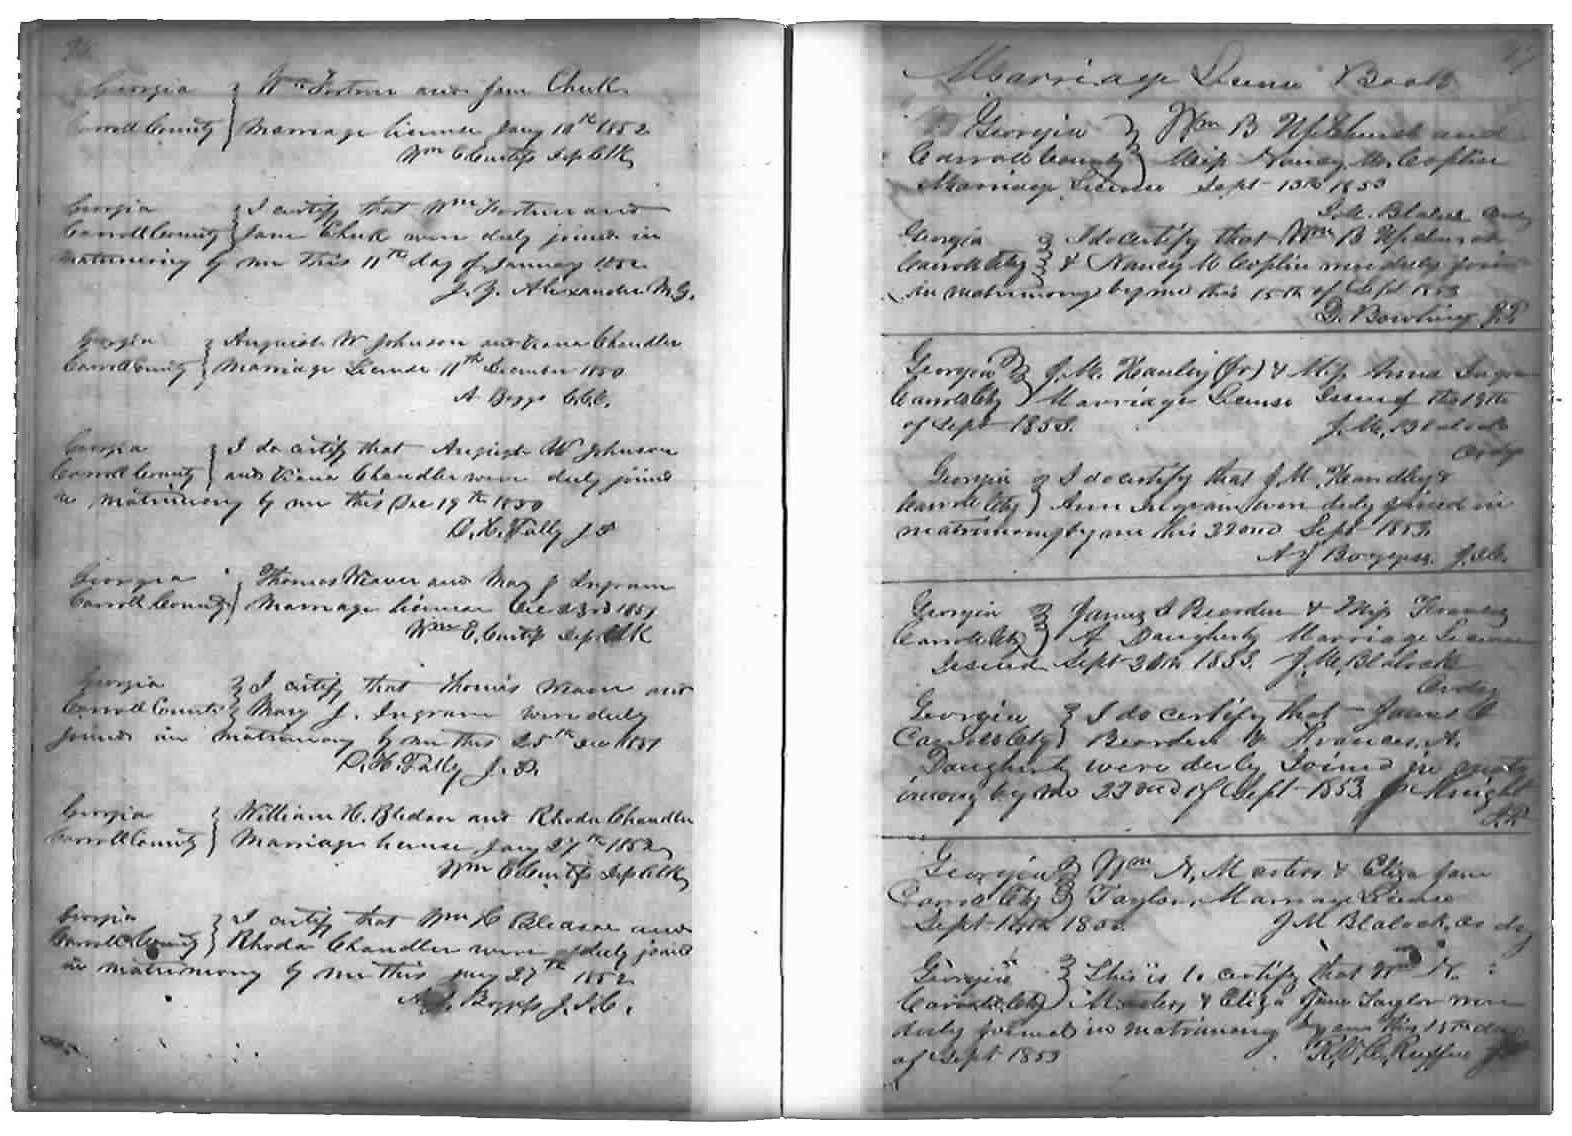 Georgia } Wm Fortner and Jane Cheek
Carroll County } Marriage License Jany 10th 1852
Wm C Curtis Dep Clk
Georgia } I certify that Wm Fortner and
Carroll County } Jane Cheek were duly joined in
matrimony by me this 11th day of January 1852
J. Y. Alexander M.G.
Georgia } August W Johnson and Viana Chandler
Carroll County } Marriage License 11th December 1850
A Boggs C.C.C.
Georgia } I do certify that August W Johnson
Carroll County } and Viana Chandler were duly joined
in matrimony by me this Dec 19th 1850
D. H. Tally J P
Georgia } Thomas Weaver and Mary J Ingram
Carroll County } Marriage License Dec 23rd 1851
Wm C. Curtis Dep Clk
Georgia } I certify that Thomas Weaver and
Carroll County } Mary J. Ingram were duly
joined in matrimony by me this 25th Dec 1851
D. H. Tally J. P.
Georgia } William H. Bledsoe and Rhoda Chandler
Carroll County } Marriage License Jany 27th 1852
Wm C Curtis Dep Clk
Georgia } I certify that Wm H Bledsoe and
Carroll County } Rhoda Chandler were duly joined
in matrimony by me this Jany 27th 1852
Boggs J.I.C.
97
Marriage License Book
Georgia } Wm B Upchurch and
Carroll County } Miss Nancy M. Coplin
Marriage License Sept 13th 1853
J.M. Blalock Ordy
Georgia } I do certify that Wm B Upchurch
Carroll Cty } & Nancy M Coplin were duly join
in matrimony by me this 15th of Sept 1853
D. Bowling J.P.
Georgia } J. M. Handley (Jr) & Miss Anna Ingram
Carroll Cty } Marriage License Issued this 19th
of Sept 1853. J. M. Blalock
Ordy
Georgia } I do certify that J. M. Handley &
Carroll Cty } Ann Ingram were duly joined in
matrimony by me this 22nd Sept 1853.
A J Boggess. J.I.C.
Georgia } James C Bearden & Miss Frances
Carroll Cty } A Daugherty Marriage License
Issued Sept 20th 1853. J. M. Blalock
Ordy
Georgia } I do certify that James C
Carroll Cty } Bearden & Frances. A.
Daugherty were duly Joined in matri
mony by me 22nd of Sept 1853 Knight
J.P.
Georgia } Wm N. Masters & Eliza Jane
Carroll Cty } Taylor, Marriage License
Sept 14th 1853. J M Blalock, Ordy
Georgia } This is to certify that Wm N.
Carroll Cty } Masters & Eliza Jane Taylor were
duly joined in matrimony by me this 15th day
of Sept 1853 R. C. Ruffin